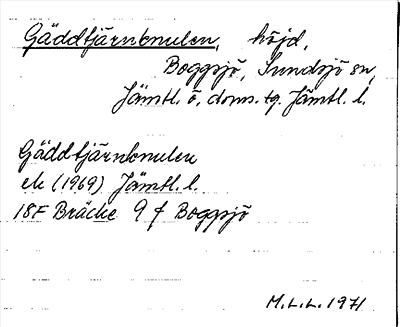 Gäddtjärnknulen, höjd,
Boggsjö, Sundsjö sn,
Jämtl. ö. doms. tg. Jämtl. l.
Gäddtjärnknulen
ek (1969) Jämtl. l.
18F Bräcke 9 f Boggsjö
M.L.L. 1971